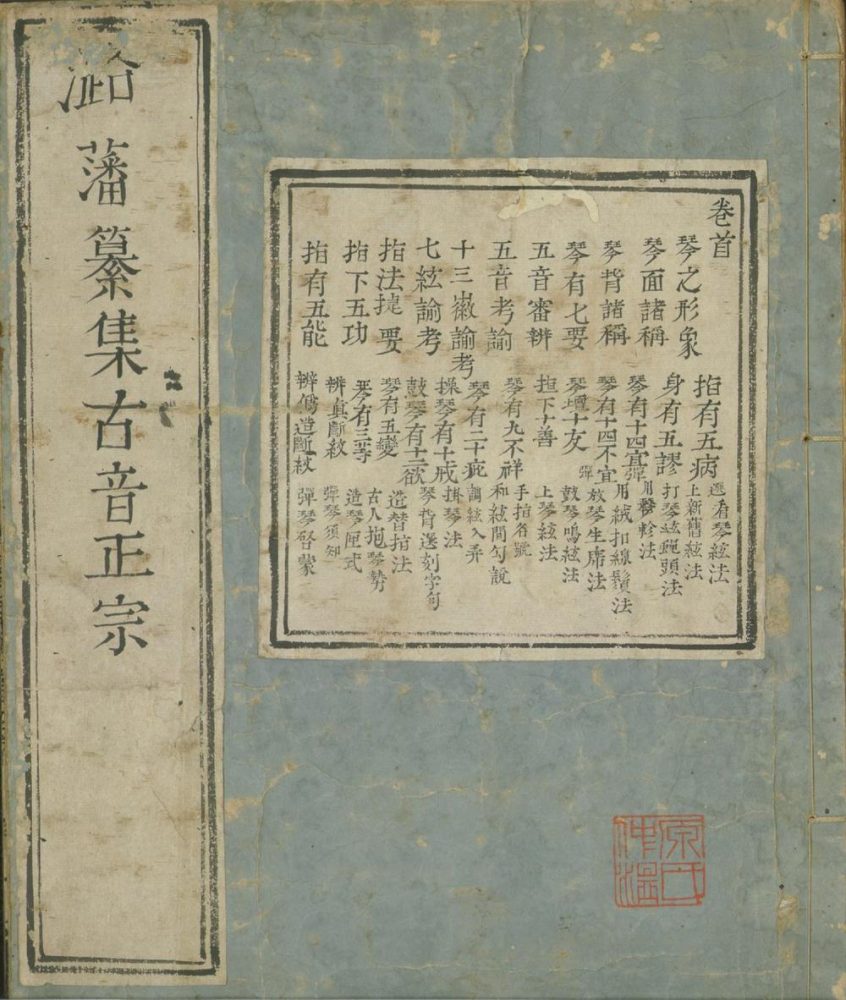 潞藩纂集古音正宗
卷首
琴之形象
琴面諸稱
琴背諸稱
琴有七要
五音審辨
五音考諭
十三徽諭考
七絃諭考
指法捷要
指下五功
指有五能
指有五病
身有五謬
琴有十四宜彈
琴有十四不宜彈
琴壇十友
指下十善
琴有九不祥
琴有二十疵
操琴有十戒
鼓琴有十二欲
琴有五變
琴有三等
辨真斷紋
辨僞造斷紋
選看琴絃法
上新舊絃法
打琴絃蠅頭法
用琴軫法
用絨扣線鬚法
放琴生席法
鼓琴鳴絃法
上琴絃法
手指各號
和絃間勾說
調絃入弄
掛琴法
琴背選刻字句
造替指法
古人抱琴勢
造琴匣式
彈琴須知
彈琴啓蒙
原氏
仲溫